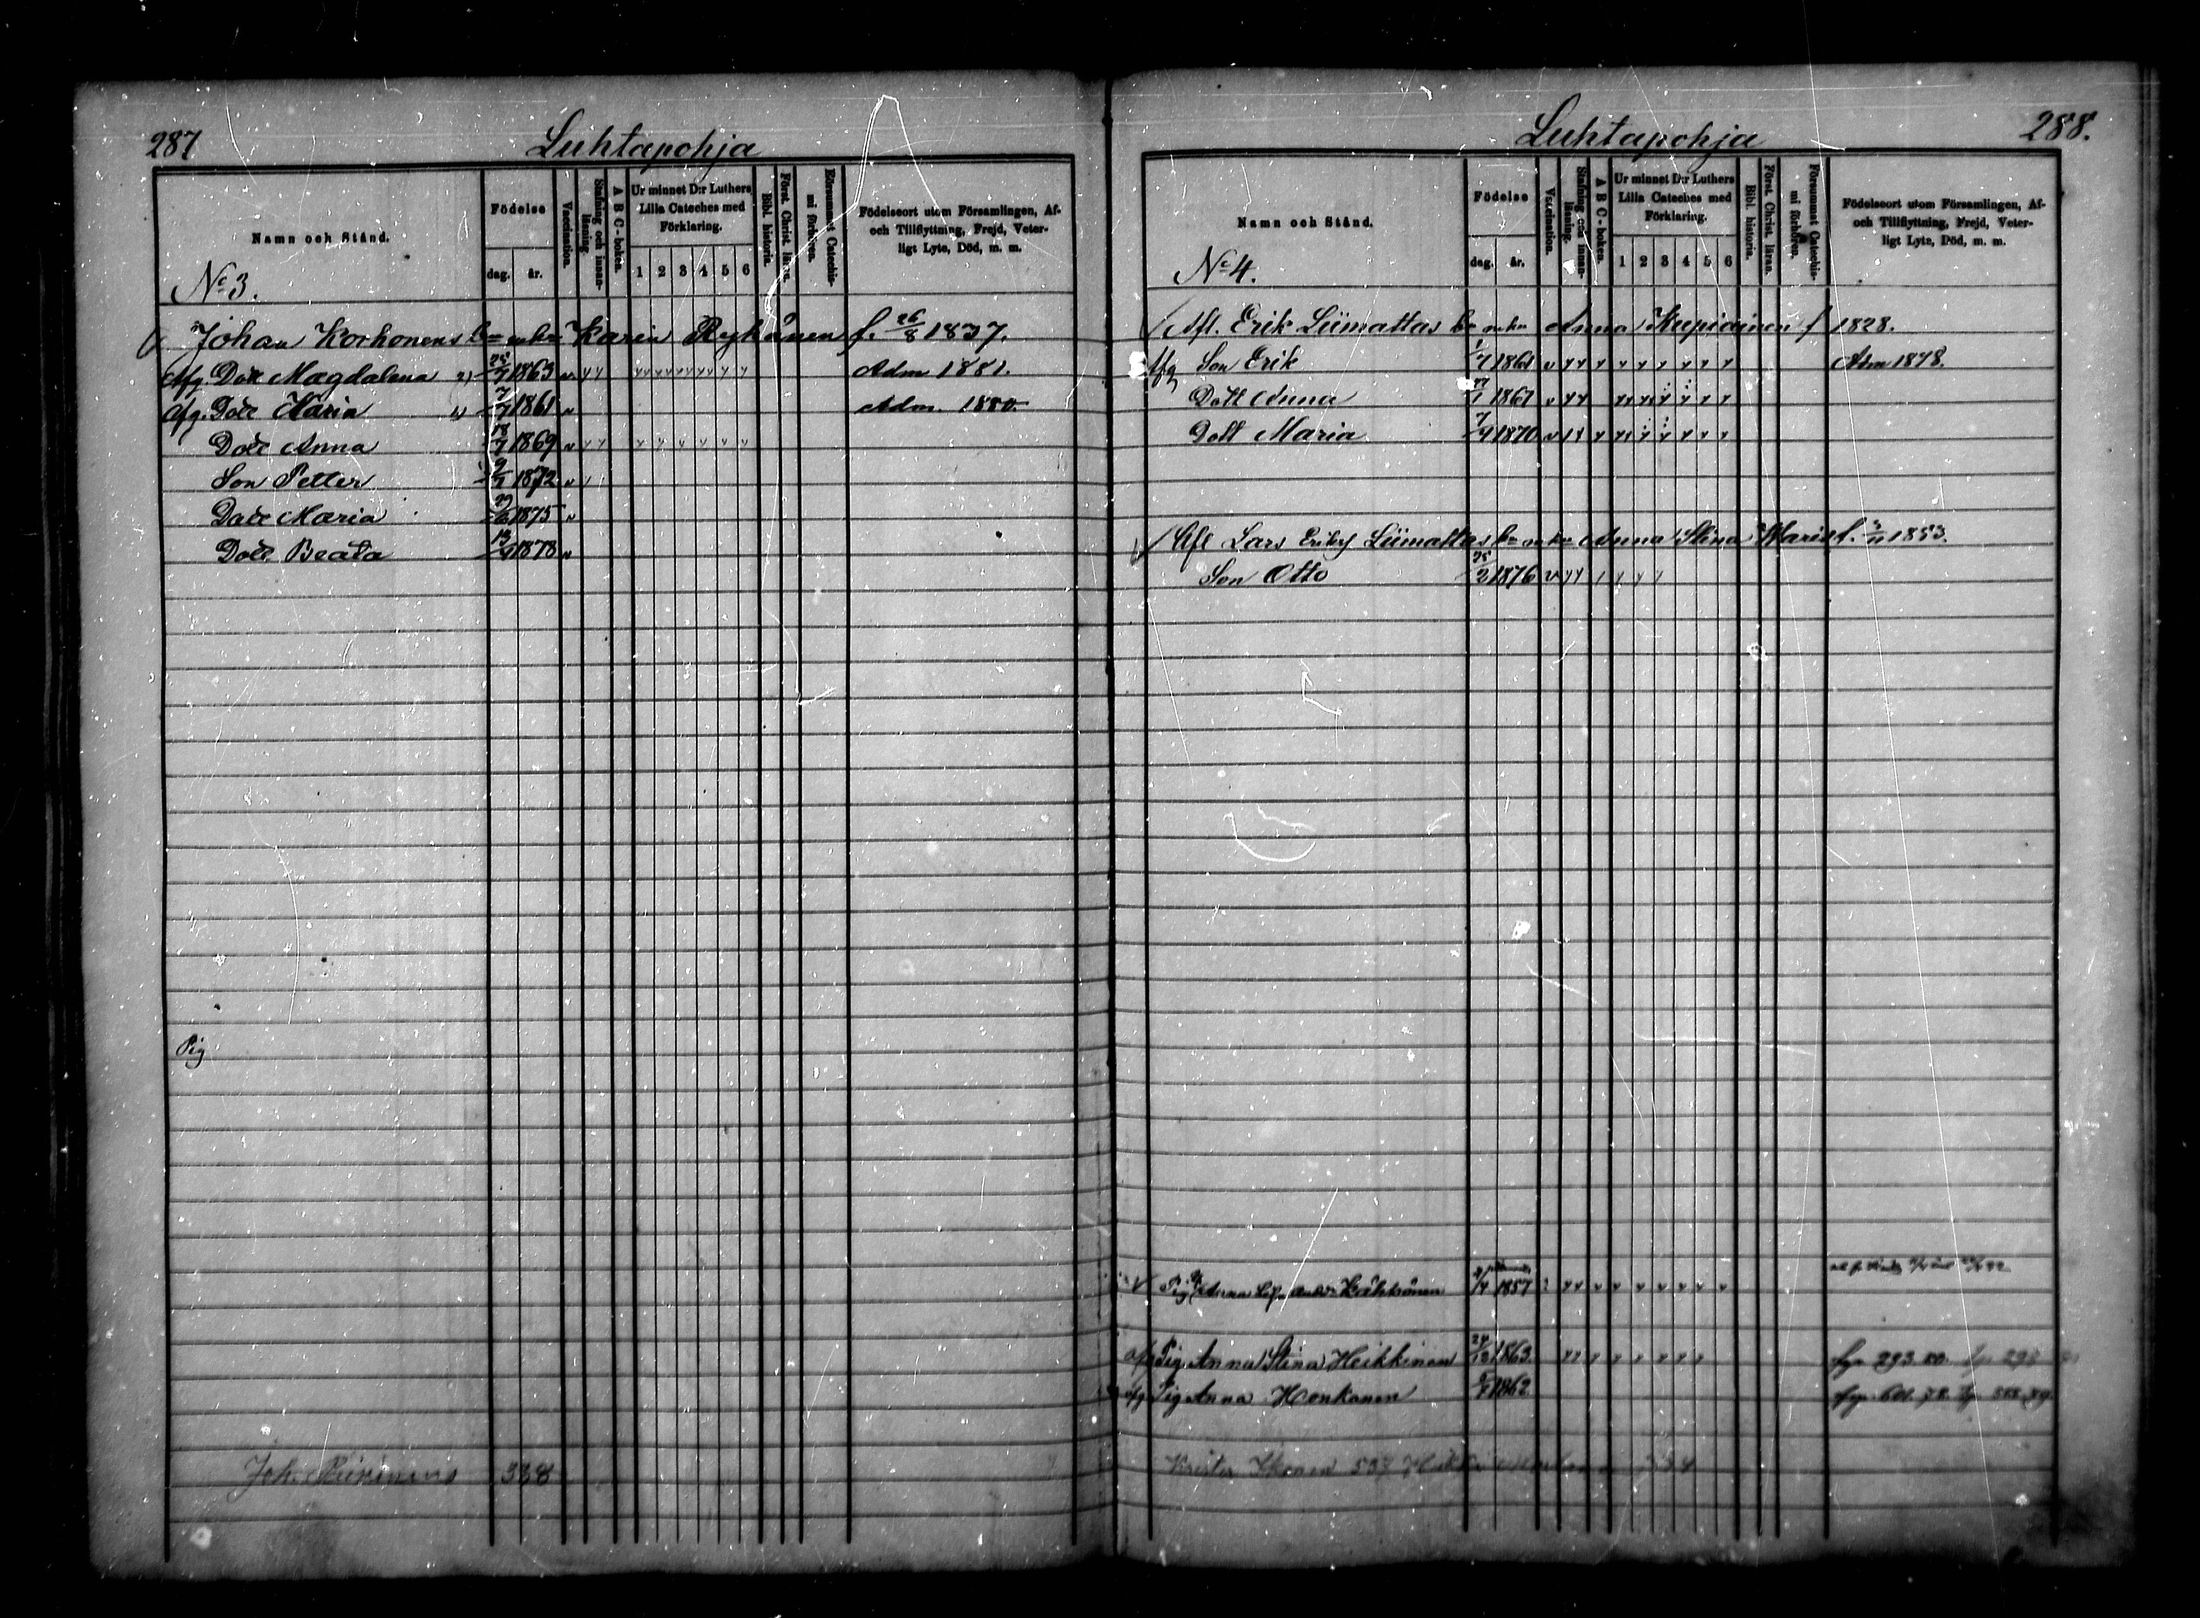 287
Luhtapohja
Namn och Stånd.
Födelse
dag. år.
Vaccination.
Stafning och innanläsning.
A B C-boken.
Ur minnet D:r Luthers Lilla Cateches med Förklaring.
1 2 3 4 5 6
Bibl. historia.
Först. Christ. läran.
Försummat Catechismi förhören.
Födelseort utom Församlingen, Af-
och Tillflyttning, Frejd, Veter-
ligt Lyte, Död, m. m.
No 3.
Johan Korhonens Karin Ryhänen f. 26/8 1837.
Afg. Dott Magdalena 2) 1863 Adm 1881.
Afg. Dott Karin 1) 1861 Adm. 1880.
Dott Anna 1869
Son Petter 1872
Dott Maria 1875
Dott Beata 1878
Pig
Joh. 338
288.
Luhtapohja
Namn och Stånd.
Födelse
dag. år.
Vaccination.
Stafning och innanläsning.
A B C-boken.
Ur minnet D:r Luthers Lilla Cateches med Förklaring.
1 2 3 4 5 6
Bibl. historia.
Först. Christ. läran.
Försummat Catechismi förhören.
Födelseort utom Församlingen, Af-
och Tillflyttning, Frejd, Veter-
ligt Lyte, Död, m. m.
No 4.
Afl. Erik Liimattas Anna Kupiainen f 1828.
Afg Son Erik 1861 Adm 1878.
Dott Anna 1867
Dott Maria 1870
Afl Lars Liimattas Anna Stina f. 1853.
Son Otto 1876
Pig Anna 1857
afg Pig. Anna Stina Heikkinen 24/12 1863. 293. 80.
afg Pig Anna Honkanen 1862